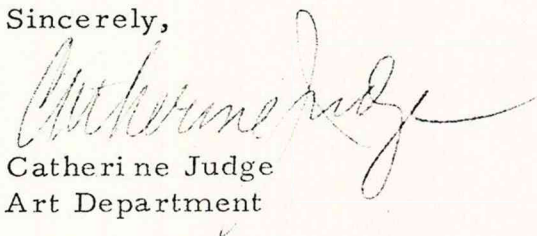 Sincerely,
Catherine Judge
Catherine Judge
Art Department